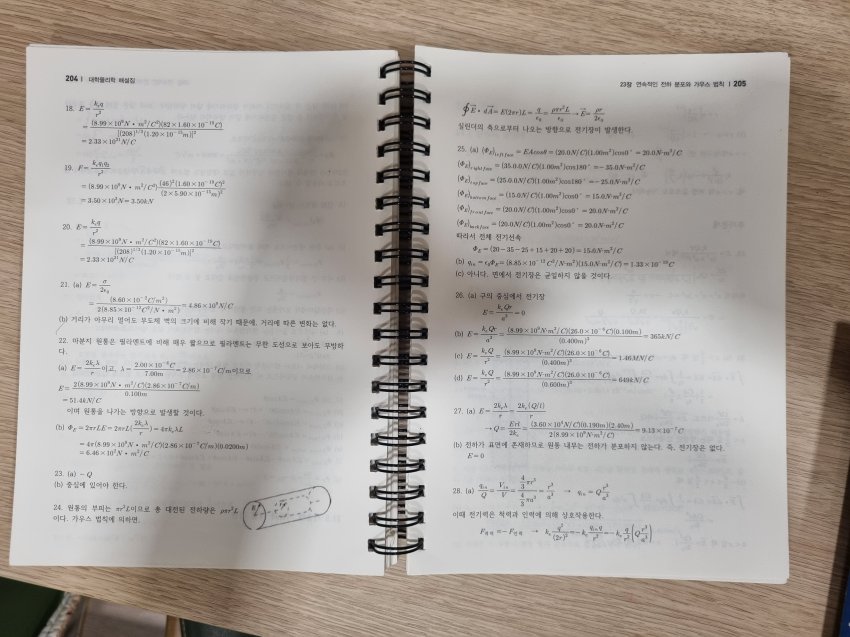 204 | 대학물리학 해설집
18. E = k_e q / r²
= (8.99×10⁹ N • m²/C²)(82×1.60×10⁻¹⁹ C) / [(208)^{1/3}(1.20×10⁻¹⁵ m)]²
= 2.33×10²¹ N/C
19. F = k_e q₁q₂ / r²
= (8.99×10⁹ N • m²/C²) (46)²(1.60×10⁻¹⁹ C)² / (2×5.90×10⁻¹⁵ m)²
= 3.50×10³ N = 3.50kN
20. E = k_e q / r²
= (8.99×10⁹ N • m²/C²)(82×1.60×10⁻¹⁹ C) / [(208)^{1/3}(1.20×10⁻¹⁵ m)]²
= 2.33×10²¹ N/C
21. (a) E = σ / 2ε₀
(b) 거리가 아무리 멀어도 부도체 벽의 크기에 비해 작기 때문에, 거리에 따른 변화는 없다.
22. 아분지 원통은 필라멘트에 비해 매우 짧으므로 필라멘트는 무한 도선으로 보아도 무방하
다.
(a) E = 2k_e λ / r 이고, λ = 2.00×10⁻⁶ C / 7.00m = 2.86×10⁻⁷ C/m이므로
E = 2(8.99×10⁹ N • m²/C²)(2.86×10⁻⁷ C/m) / 0.100m
= 51.4kN/C
이며 원통을 나가는 방향으로 발생할 것이다.
(b) Φ_E = 2πrLE = 2πrL(2k_e λ / r) = 4πk_e λL
= 4π(8.99×10⁹ N • m²/C²)(2.86×10⁻⁷ C/m)(0.0200m)
= 6.46×10² N • m²/C
23. (a) −Q
(b) 중심에 있어야 한다.
24. 원통의 부피는 πr²L이므로 총 대전된 전하량은 ρπr²L
이다. 가우스 법칙에 의하면,
23장 연속적인 전하 분포와 가우스 법칙 | 205
∮E • dA = E(2πr)L = q/ε₀ = ρπr²L/ε₀ → E = ρr/2ε₀
실린더의 축으로부터 나오는 방향으로 전기장이 발생한다.
25. (a) (Φ_E)_{left face} = EAcosθ = (20.0N/C)(1.00m²)cos0° = 20.0N·m²/C
(Φ_E)_{right face} = (35.0.0N/C)(1.00m²)cos180° = −35.0N·m²/C
(Φ_E)_{top face} = (25.0.0N/C)(1.00m²)cos180° = −25.0N·m²/C
(Φ_E)_{bottom face} = (15.0N/C)(1.00m²)cos0° = 15.0N·m²/C
(Φ_E)_{front face} = (20.0N/C)(1.00m²)cos0° = 20.0N·m²/C
(Φ_E)_{back face} = (20.0N/C)(1.00m²)cos0° = 20.0N·m²/C
따라서 전체 전기선속
Φ_E = (20−35−25+15+20+20) = 15.0N·m²/C
(b) q_in = ε₀Φ_E = (8.85×10⁻¹² C²/N·m²)(15.0N·m²/C) = 1.33×10⁻¹⁰ C
(c) 아니다. 면에서 전기장은 균일하지 않을 것이다.
26. (a) 구의 중심에서 전기장
E = k_e Qr / a³ = 0
(b) E = k_e Qr / a³ = (8.99×10⁹ N·m²/C²)(26.0×10⁻⁶ C)(0.100m) / (0.400m)³ = 365kN/C
(c) E = k_e Q / r² = (8.99×10⁹ N·m²/C²)(26.0×10⁻⁶ C) / (0.400m)² = 1.46MN/C
(d) E = k_e Q / r² = (8.99×10⁹ N·m²/C²)(26.0×10⁻⁶ C) / (0.600m)² = 649kN/C
27. (a) E = 2k_e λ / r = 2k_e (Q/l) / r
→ Q = Erl / 2k_e = (3.60×10⁴ N/C)(0.190m)(2.40m) / 2(8.99×10⁹ N·m²/C²) = 9.13×10⁻⁷ C
(b) 전하가 표면에 존재하므로 원통 내부는 전하가 분포하지 않는다. 즉, 전기장은 없다.
E = 0
28. (a) q_in / Q = V_in / V = (4/3 πr³) / (4/3 πa³) = r³/a³ → q_in = Q r³/a³
이때 전기력은 척력과 인력에 의해 상호작용한다.
F_척력 = −F_인력 → k_e q² / (2r)² = −k_e q_in q / r² = −k_e q / r² (Q r³/a³)